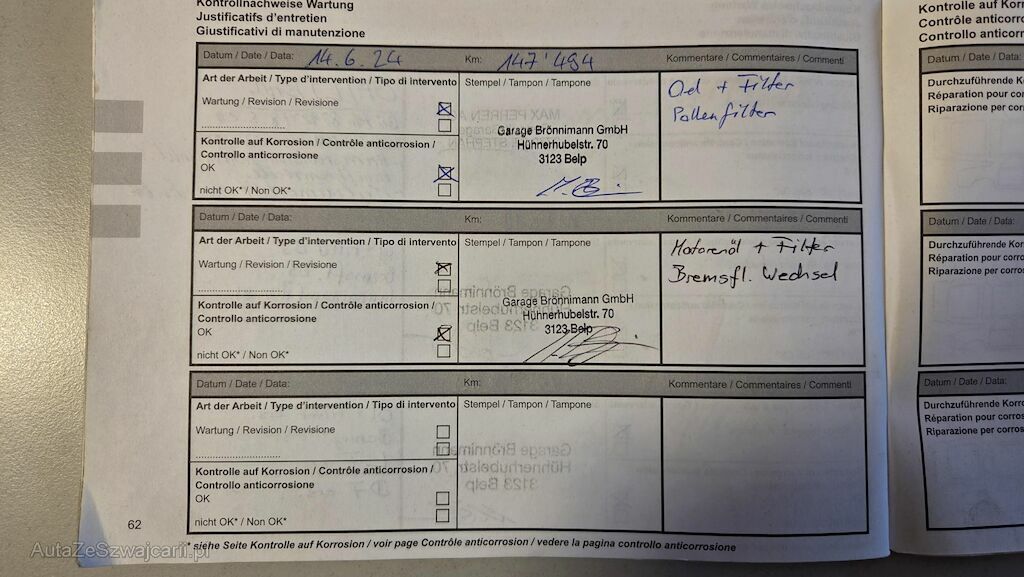 Kontrollnachweise Wartung
Justificatifs d'entretien
Giustificativi di manutenzione
Datum / Date / Data: 14.6.24 Km: 147'494 Kommentare / Commentaires / Commenti
Art der Arbeit / Type d'intervention / Tipo di intervento Stempel / Tampon / Tampone
Oel + Filter
Wartung / Revision / Revisione
Pollenfilter
Garage Brönnimann GmbH
Hühnerhubelstr. 70
3123 Belp
Kontrolle auf Korrosion / Contrôle anticorrosion /
Controllo anticorrosione
OK
nicht OK* / Non OK*
Datum / Date / Data: Km: Kommentare / Commentaires / Commenti
Art der Arbeit / Type d'intervention / Tipo di intervento Stempel / Tampon / Tampone
Motorenöl + Filter
Wartung / Revision / Revisione
Bremsfl. Wechsel
Garage Brönnimann GmbH
Hühnerhubelstr. 70
3123 Belp
Kontrolle auf Korrosion / Contrôle anticorrosion /
Controllo anticorrosione
OK
nicht OK* / Non OK*
Datum / Date / Data: Km: Kommentare / Commentaires / Commenti
Art der Arbeit / Type d'intervention / Tipo di intervento Stempel / Tampon / Tampone
Wartung / Revision / Revisione
Kontrolle auf Korrosion / Contrôle anticorrosion /
Controllo anticorrosione
OK
nicht OK* / Non OK*
62
* siehe Seite Kontrolle auf Korrosion / voir page Contrôle anticorrosion / vedere la pagina controllo anticorrosione
Kontrolle auf Kor
Contrôle anticorro
Controllo anticorr
Datum / Date / Data:
Durchzuführende Kor
Réparation pour corros
Riparazione per corros
Datum / Date / Data:
Durchzuführende Kor
Réparation pour corro
Riparazione per corros
Datum / Date / Data:
Durchzuführende Korro
Réparation pour corros
Riparazione per corros
AutaZeSzwajcarii.pl